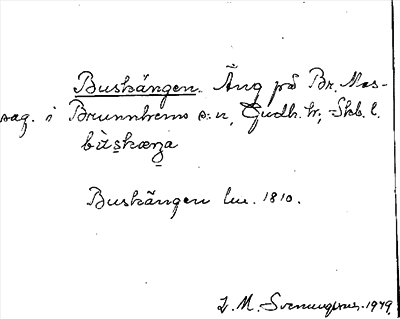 Buskängen. Äng på Br. Mos-
sag. i Brunnhems s:n, Gudh. hr; Skb. l.
bùskæŋa
Buskängen lm. 1810.
J. M. Svenungsson. 1949.